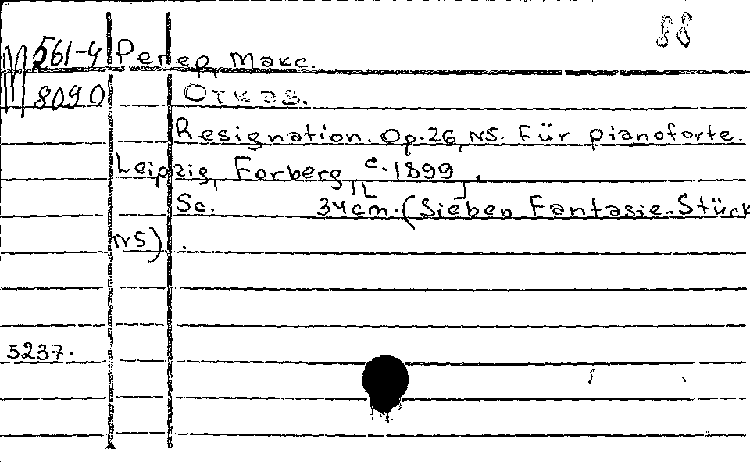 88
561-4 Регер, Макс.
8090 Отказ.
Resignation. Op. 26, N5. Für pianoforte.
Leipzig, Forberg, [c. 1899].
Sc. 34cm. (Sieben Fantasie-Stück
N5).
5237.